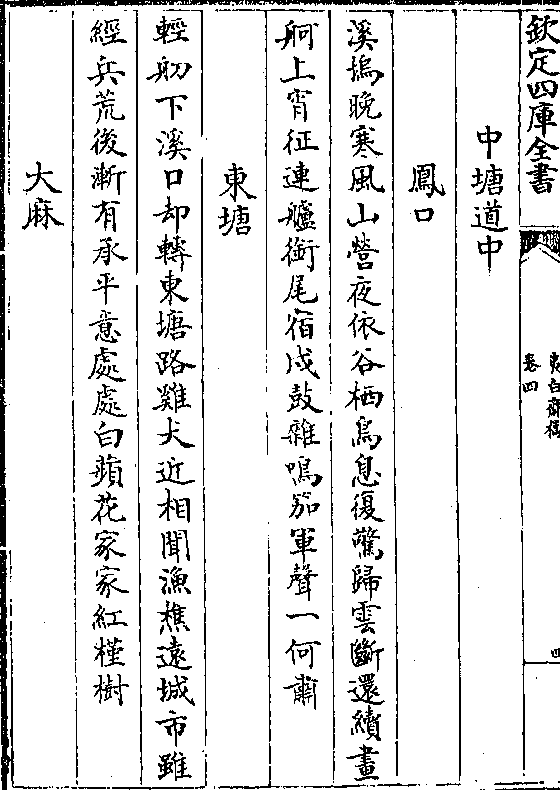 欽定四庫全書
卷四
四
中塘道中
鳳口
溪塢晚寒風山營夜依谷栖烏息復驚歸雲斷還續畫
舸上宵征連艫銜尾宿戍鼓雜鳴笳軍聲一何肅
東塘
輕舠下溪口却轉東塘路雞犬近相聞漁樵遠城市雖
經兵荒後漸有承平意處處白蘋花家家紅槿樹
大麻